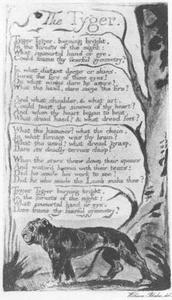 The Tyger.
Tyger Tyger, burning bright,
In the forests of the night:
What immortal hand or eye,
Could frame thy fearful symmetry?
In what distant deeps or skies.
Burnt the fire of thine eyes?
On what wings dare he aspire?
What the hand, dare sieze the fire?
And what shoulder, & what art,
Could twist the sinews of thy heart?
And when thy heart began to beat,
What dread hand? & what dread feet?
What the hammer? what the chain,
In what furnace was thy brain?
What the anvil? what dread grasp,
Dare its deadly terrors clasp!
When the stars threw down their spears
And water'd heaven with their tears:
Did he smile his work to see?
Did he who made the Lamb make thee?
Tyger Tyger burning bright,
In the forests of the night:
What immortal hand or eye,
Dare frame thy fearful symmetry?
William Blake